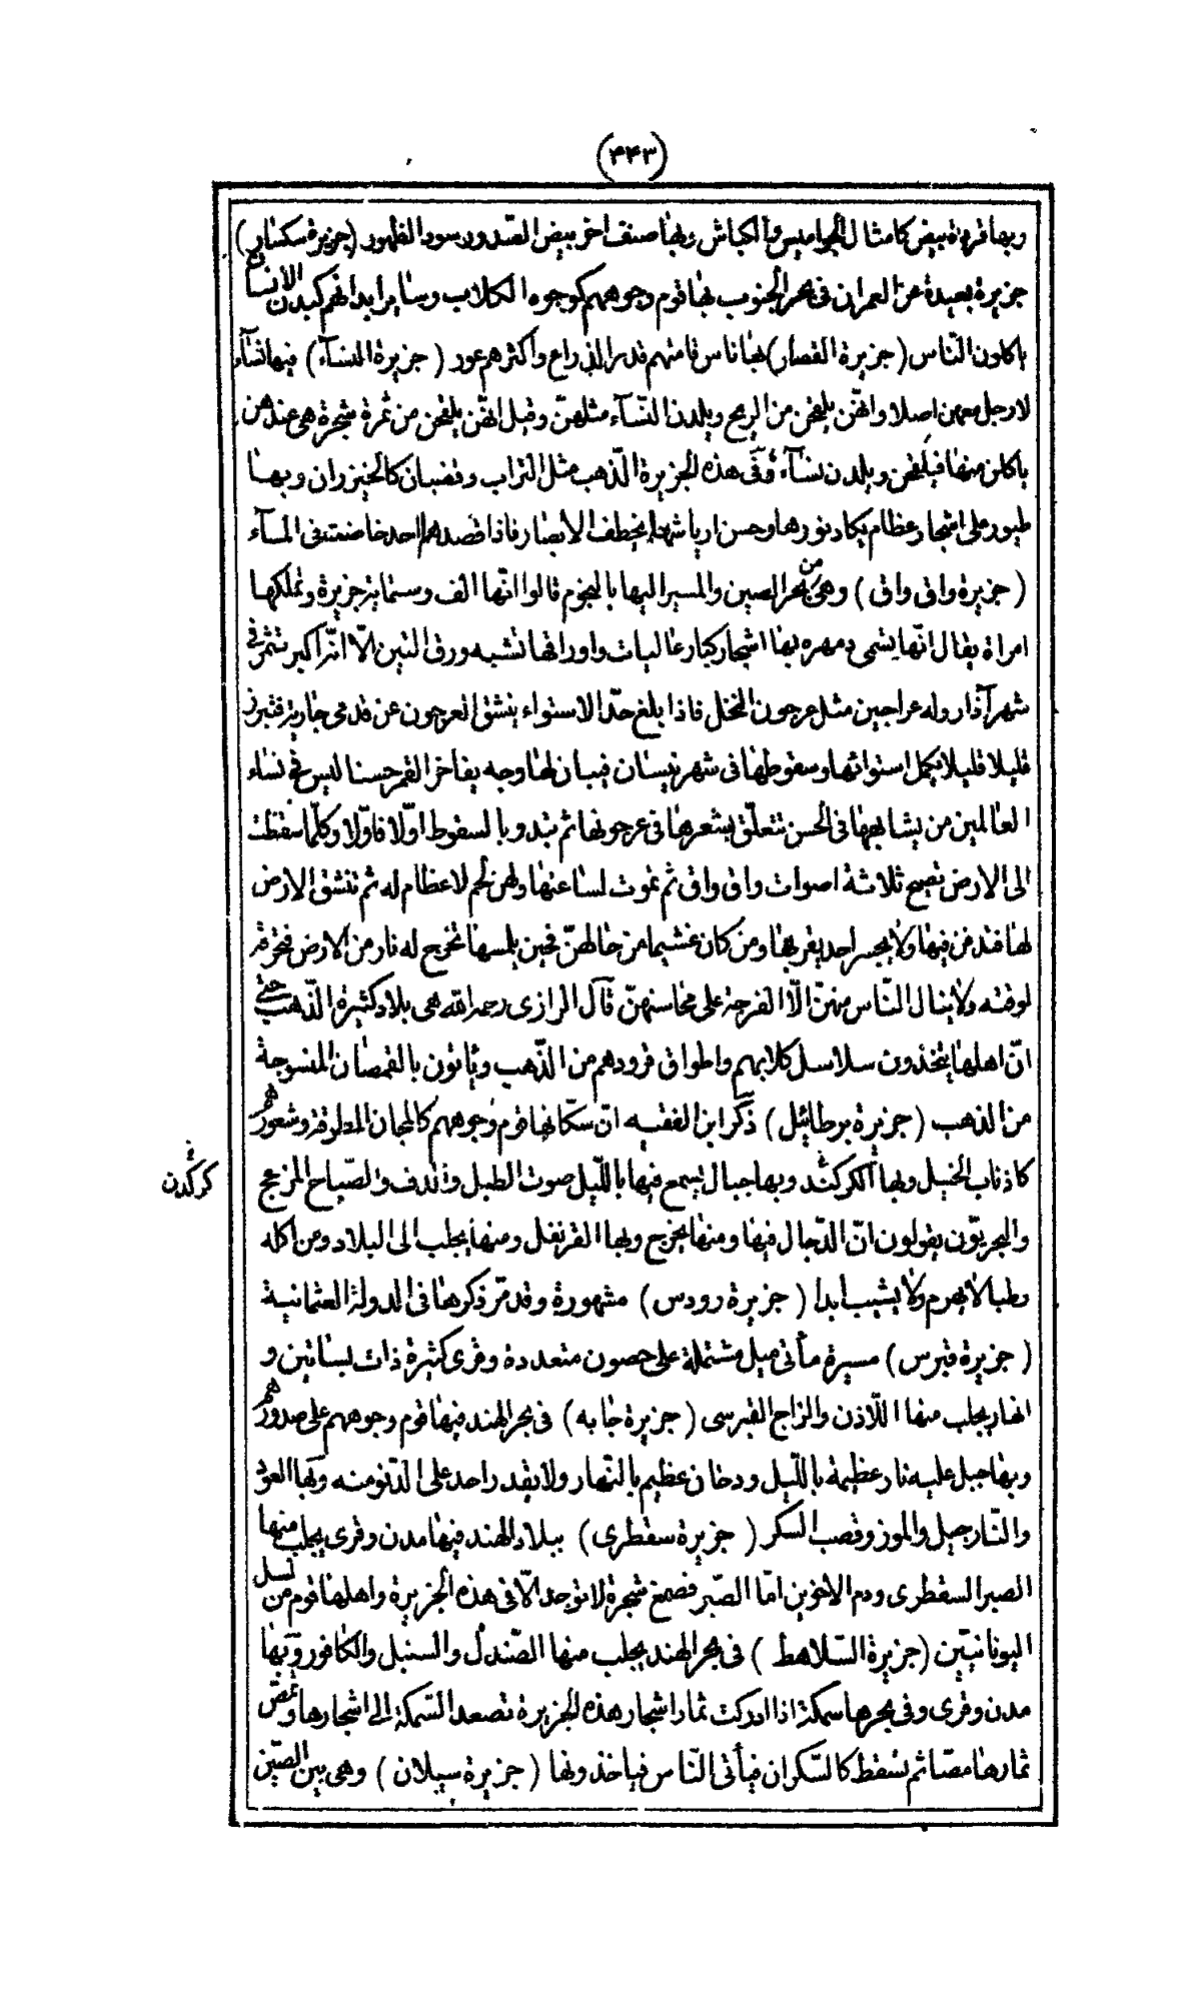 (٤٤٣)
وبها قردة بيض كامثال الجواميس والكباش وبها صنف اخر بيض الصدور سود الظهور (جزيرة سكسار)
جزيرة بعيدة عن العمران فى بحر الجنوب بها قوم وجوههم كوجوه الكلاب وساير أبدانهم كبدن الانسان
ياكلون النّاس (جزيرة القصار) بها ناس قامتهم قدر الذراع واكثرهم عور (جزيرة النسآء) فيها نسآء
لا رجل معهن اصلا وانهّن يلقحن من الريح ويلدن النّسآء مثلهنّ وقيل انهّن يلقحن من ثمرة شجرة هى عندهن
ياكلن منها فيلقحن ويلدن نسآء وفى هذه الجزيرة الذّهب مثل التراب وقضبان كالخيزران وبها
طيور على اشجار عظام يكاد نورها وحسن ارياشها يخطف الابصار فاذا قصدهم احد خاضت فى المآء
(جزيرة واق واق) وهى من بحر الصين والمسير اليها بالنجوم قالوا انّها الف وستماية جزيرة وتملكها
امراة يقال انّها يسمى دمهره بها اشجار كبار عاليات واوراقها تشبه ورق التين الّا انّه اكبر تثمر فى
شهر آذار وله عراجين مثل عرجون النخل فاذا بلغ حدّ الاستواء ينشق العرجون عن قدمى جارية فتبرز
قليلا قليلا يكمل استوائها وسقوطها فى شهر نيسان فيبان لها وجه يفاخر القمر حسنا ليس فى نساء
العالمين من يشابهها فى الحسن تتعلّق بشعرها فى عرجونها ثم تبدو بالسقوط اوّلا فاوّلا وكلّما سقطت
الى الارض تصيح ثلاثة اصوات واق واق ثم تموت لساعتها ولهن لحم لا عظام له ثم تنشق الارض
لها فتدفن فيها ولا يجسر احد يقربها ومن كان غشيما من حالهنّ فحين يلمسها تخرج له نار من الارض فتحرقه
لوقته ولا ينال النّاس منهنّ الّا الفرجة على محاسنهنّ قآل الرازى رحمه الله هى بلاد كثيرة الذّهب حتى
انّ اهلها يتخذون سلاسل كلابهم واطواق قرودهم من الذّهب وياتون بالقمصان المنسوجة
من الذهب (جزيرة برطائيل) ذكر ابن الفقيه انّ سكّانها قوم وجوههم كالمجان المطرقة وشعورهم
كاذناب الخيل وبها الكركند وبها جبال يسمع فيها باللّيل صوت الطبل والدف والصّياح المزعج
كركدن
والبحريّون يقولون انّ الدّجال فيها ومنها يخرج وبها القرنفل ومنها يجلب الى البلاد ومن اكله
رطبا لا يهرم ولا يشيب ابدا (جزيرة رودس) مشهورة وقد مرّ ذكرها فى الدولة العثمانية
(جزيرة قبرس) مسيرة مأتى ميل مشتملة على حصون متعددة وقرى كثيرة ذات بساتين و
انهار يجلب منها اللّاذن والزاج القبرسى (جزيرة جابه) فى بحر الهند فيها قوم وجوههم على صدورهم
وبها جبل عليه نار عظيمة باللّيل ودخان عظيم بالنّهار ولا يقدر احد على الدّنو منه وبها العود
والنّارجيل والموز وقصب السكر (جزيرة سقطرى) ببلاد الهند فيها مدن وقرى يجلب منها
الصبر السقطرى ودم الاخوين امّا الصّبر فصمغ شجرة لا توجد الّا فى هذه الجزيرة واهلها قوم من نسل
اليونانيّين (جزيرة السّلاهط) فى بحر الهند يجلب منها الصّندل والسنبل والكافور وبها
مدن وقرى وفى بحرها سمكة اذا ادركت ثمار اشجار هذه الجزيرة تصعد السّمكة الى اشجارها وتمصّ
ثمارها مصّا ثم تسقط كالسّكران فيأتى النّاس فياخذونها (جزيرة سيلان) وهى بين الصّين